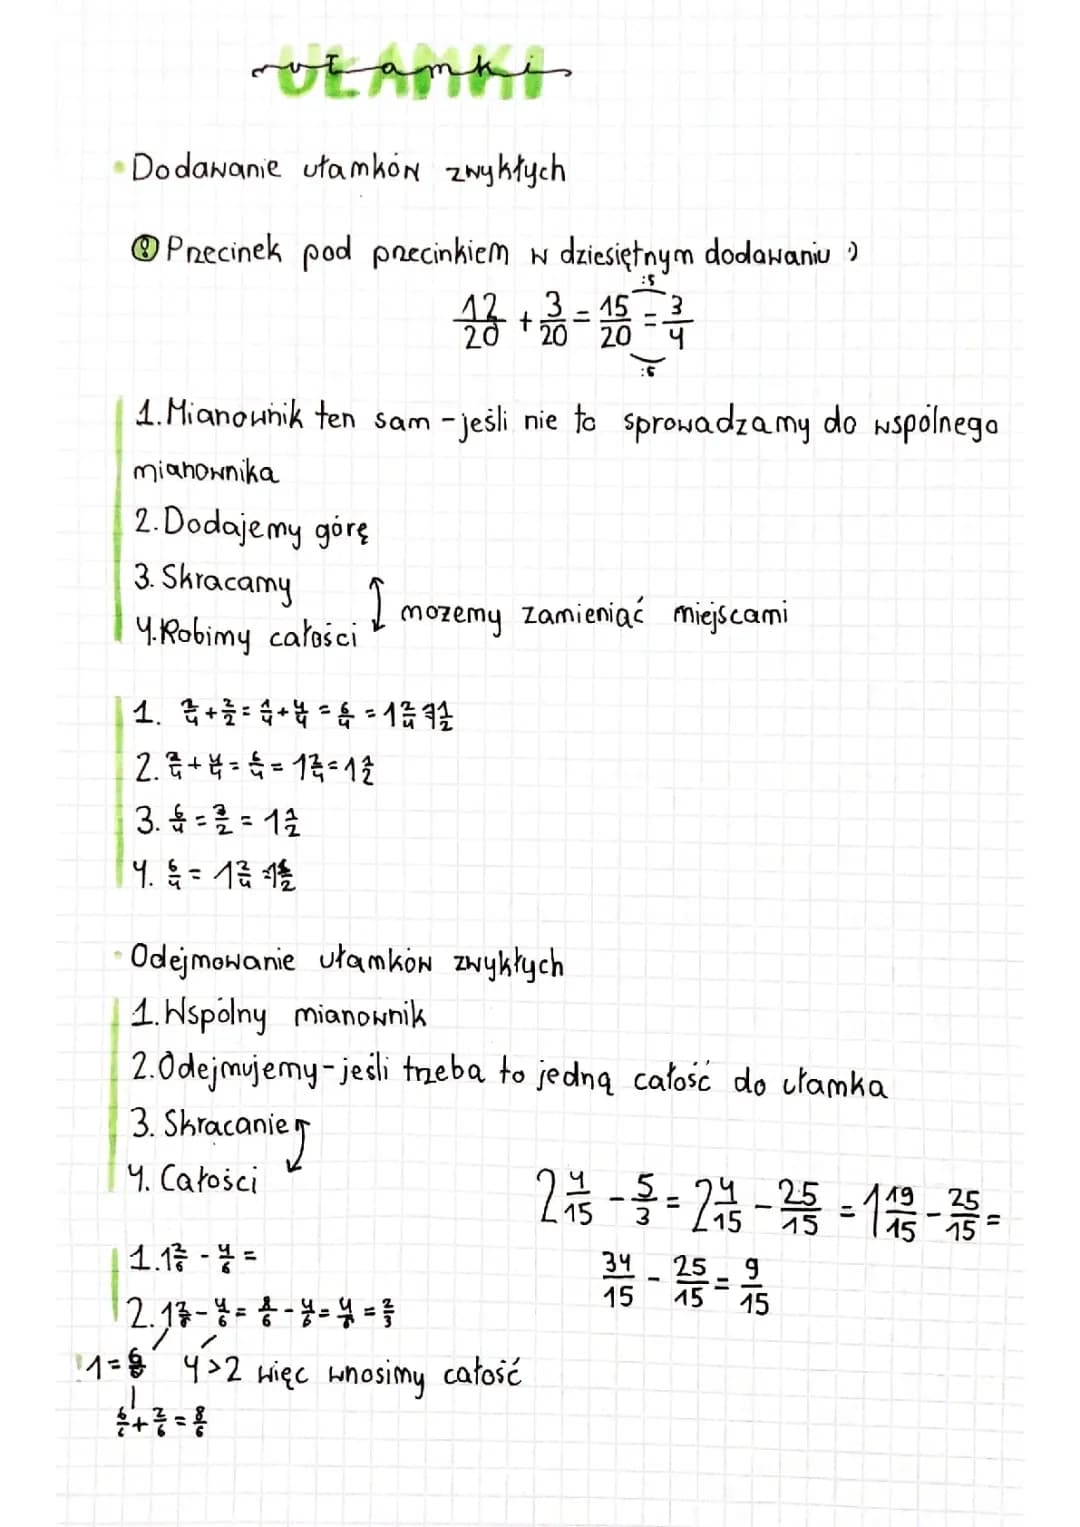 UŁAMKI
ułamki
• Dodawanie ułamków zwykłych
! Przecinek pod przecinkiem w dziesiętnym dodawaniu :)
12/20 + 3/20 = 15/20 = 3/4
:5
:5
1. Mianownik ten sam - jeśli nie to sprowadzamy do wspólnego
mianownika
2. Dodajemy górę
3. Skracamy
4. Robimy całości
możemy zamieniać miejscami
1. 2/4 + 2/2 = + 4/4 = 6/4 = 1 2/4 = 1 1/2
2. 2/4 + 4/4 = 6/4 = 1 2/4 = 1 1/2
3. 6/4 = 3/2 = 1 1/2
4. 6/4 = 1 2/4
• Odejmowanie ułamków zwykłych
1. Wspólny mianownik
2. Odejmujemy - jeśli trzeba to jedną całość do ułamka
3. Skracanie
4. Całości
2 4/15 - 5/3 = 2 4/15 - 25/15 = 1 19/15 - 25/15 =
34/15 - 25/15 = 9/15
1. 1 2/6 - 4/6 =
2. 1 2/6 - 4/6 = 8/6 - 4/6 = 4/6 = 2/3
! 1 = 6/6 4>2 więc wnosimy całość
6/6 + 2/6 = 8/6